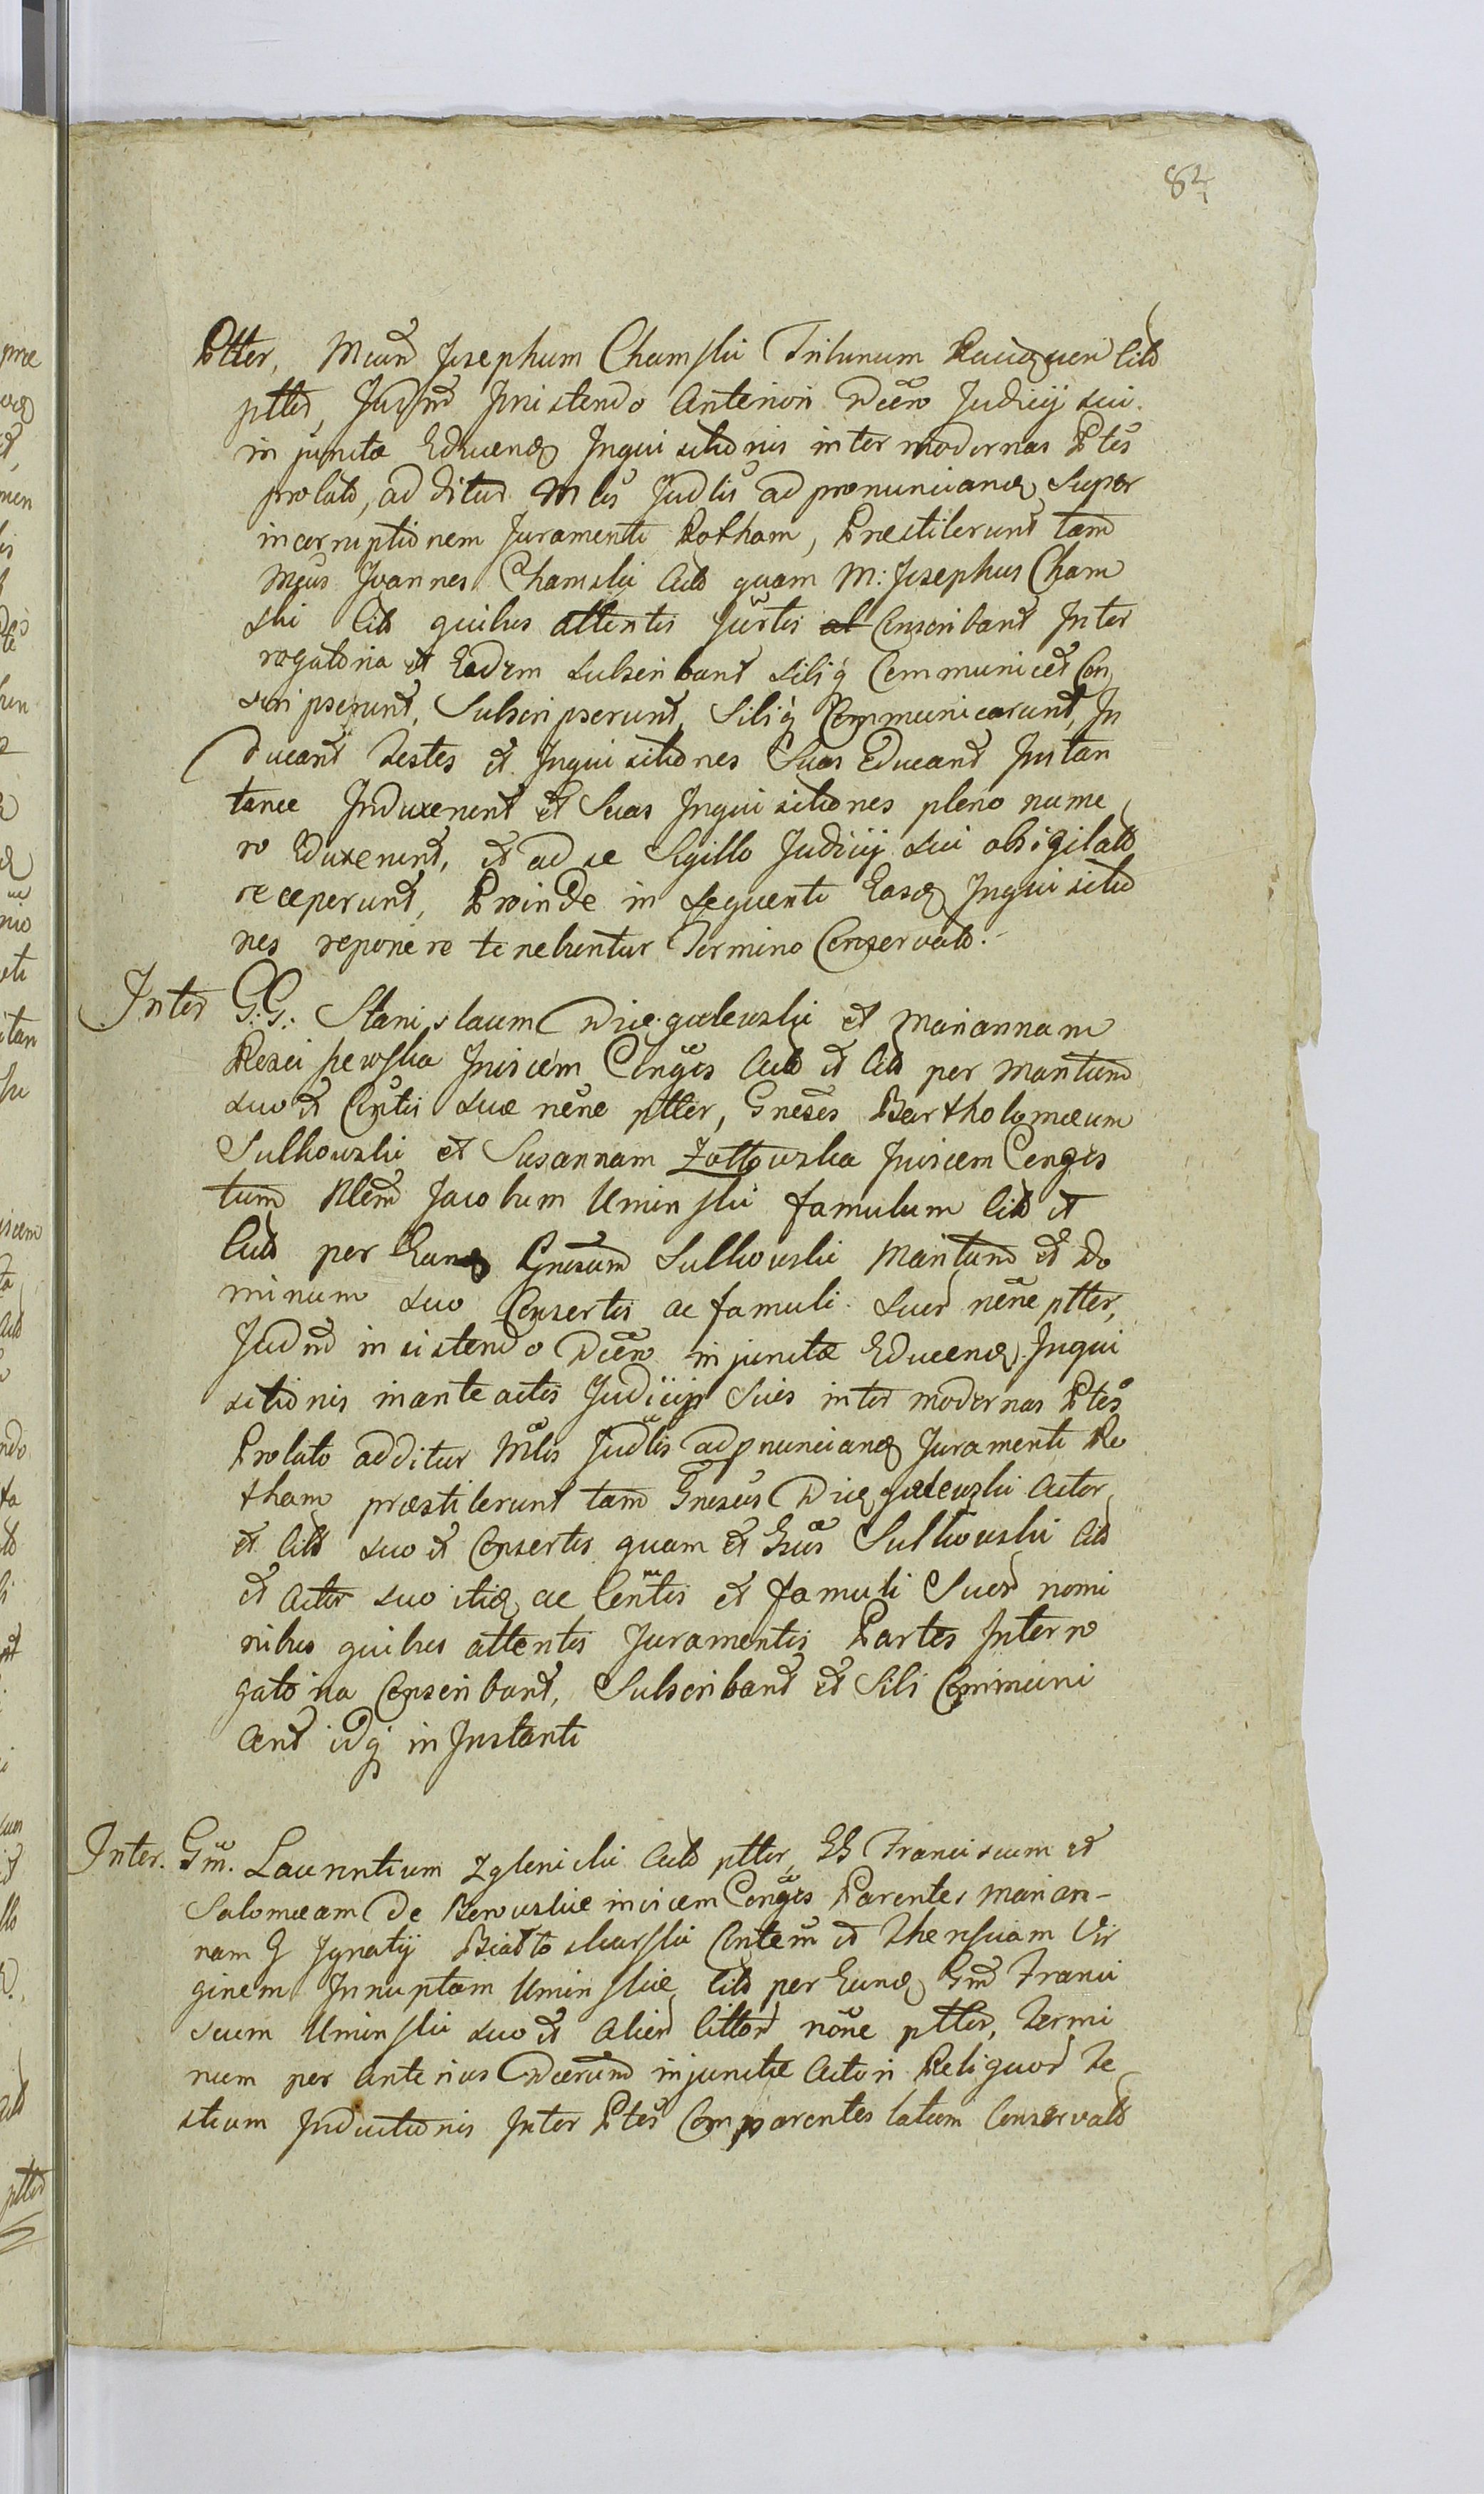 84
Ptter, Mcum Josephum Chamski Tribunum Citt
ptter, Judm Insistendo Anteriori Dcro Judicij sui
injunctæ Educenæ Inquisitionis inter modernas Ptes
prolato, additur Mlis Judlis ad pronuncianæ super
incorruptionem Juramenti Rotham, Præstiterunt tam
Mcus Joannes Chamski Actt quam M: Josephus Cham
ski Citt quibus attentis Jurtis Conscribant Inter
rogatoria et Eadem subscribant sibiq Communicet Con
scripserunt, Subscripserunt, Sibiq Communicarunt, In
ducant Testes et Inquisitiones Suas Educant Instan
tanee Induxerunt et Suas Inquisitiones pleno nume
ro Eduxerunt, et ad se Sigillo Judicij sui obsigilatt
receperunt, Proinde in sequenti Easq Inquisitio
nes reponere tenebuntur Termino Conservato.
Inter G:G: Stanislaum et Mariannam
Invicem Conges Actt et Citt per Maritum
suo et Contis suæ nene ptter, Gneses Bartholomæum
Sulkowski et Susannam Zottowska Invicem Conges
tum Nlem Jacobum Uminski famulum Citt et
Actt per Eunq Gnesum Sulkowski Maritum et Do
minum suo Consortis ac famuli suor nene ptter,
Judm insistendo Dcro injunctæ Educenæ Inqui
sitionis in ante actis Judicijs Suis inter modernas Ptes
Prolato additur Mlis Judlis ad pnuncianæ Juramenti Ro
tham præstiterunt tam Gnesus Actor
et Citt suo et Consortis quam et Gsus Sulkowski Citt
et Actor suo itiq ac Contis et famuli Suor nomi
nibus quibus attentis Juramentis Partes Interro
gatoria Conscribant, Subscribant et Sibi Communi
cent idq in Instanti
Inter. Gm. Laurentium Zglenicki Actt ptter, GG Franciscum et
Salomæam De invicem Conges Parentes Marian-
nam G Ignatij Contem et Theresiam Vir
ginem Innuptam Uminskie Citt per Eunq Gm Franci
scum Uminski suo et Alior Cittor none ptter, Termi
num per anterius Dcretum injunctæ Actori Reliquor Te
stium Inductionis Inter Ptes Comparentes latum Conservatt